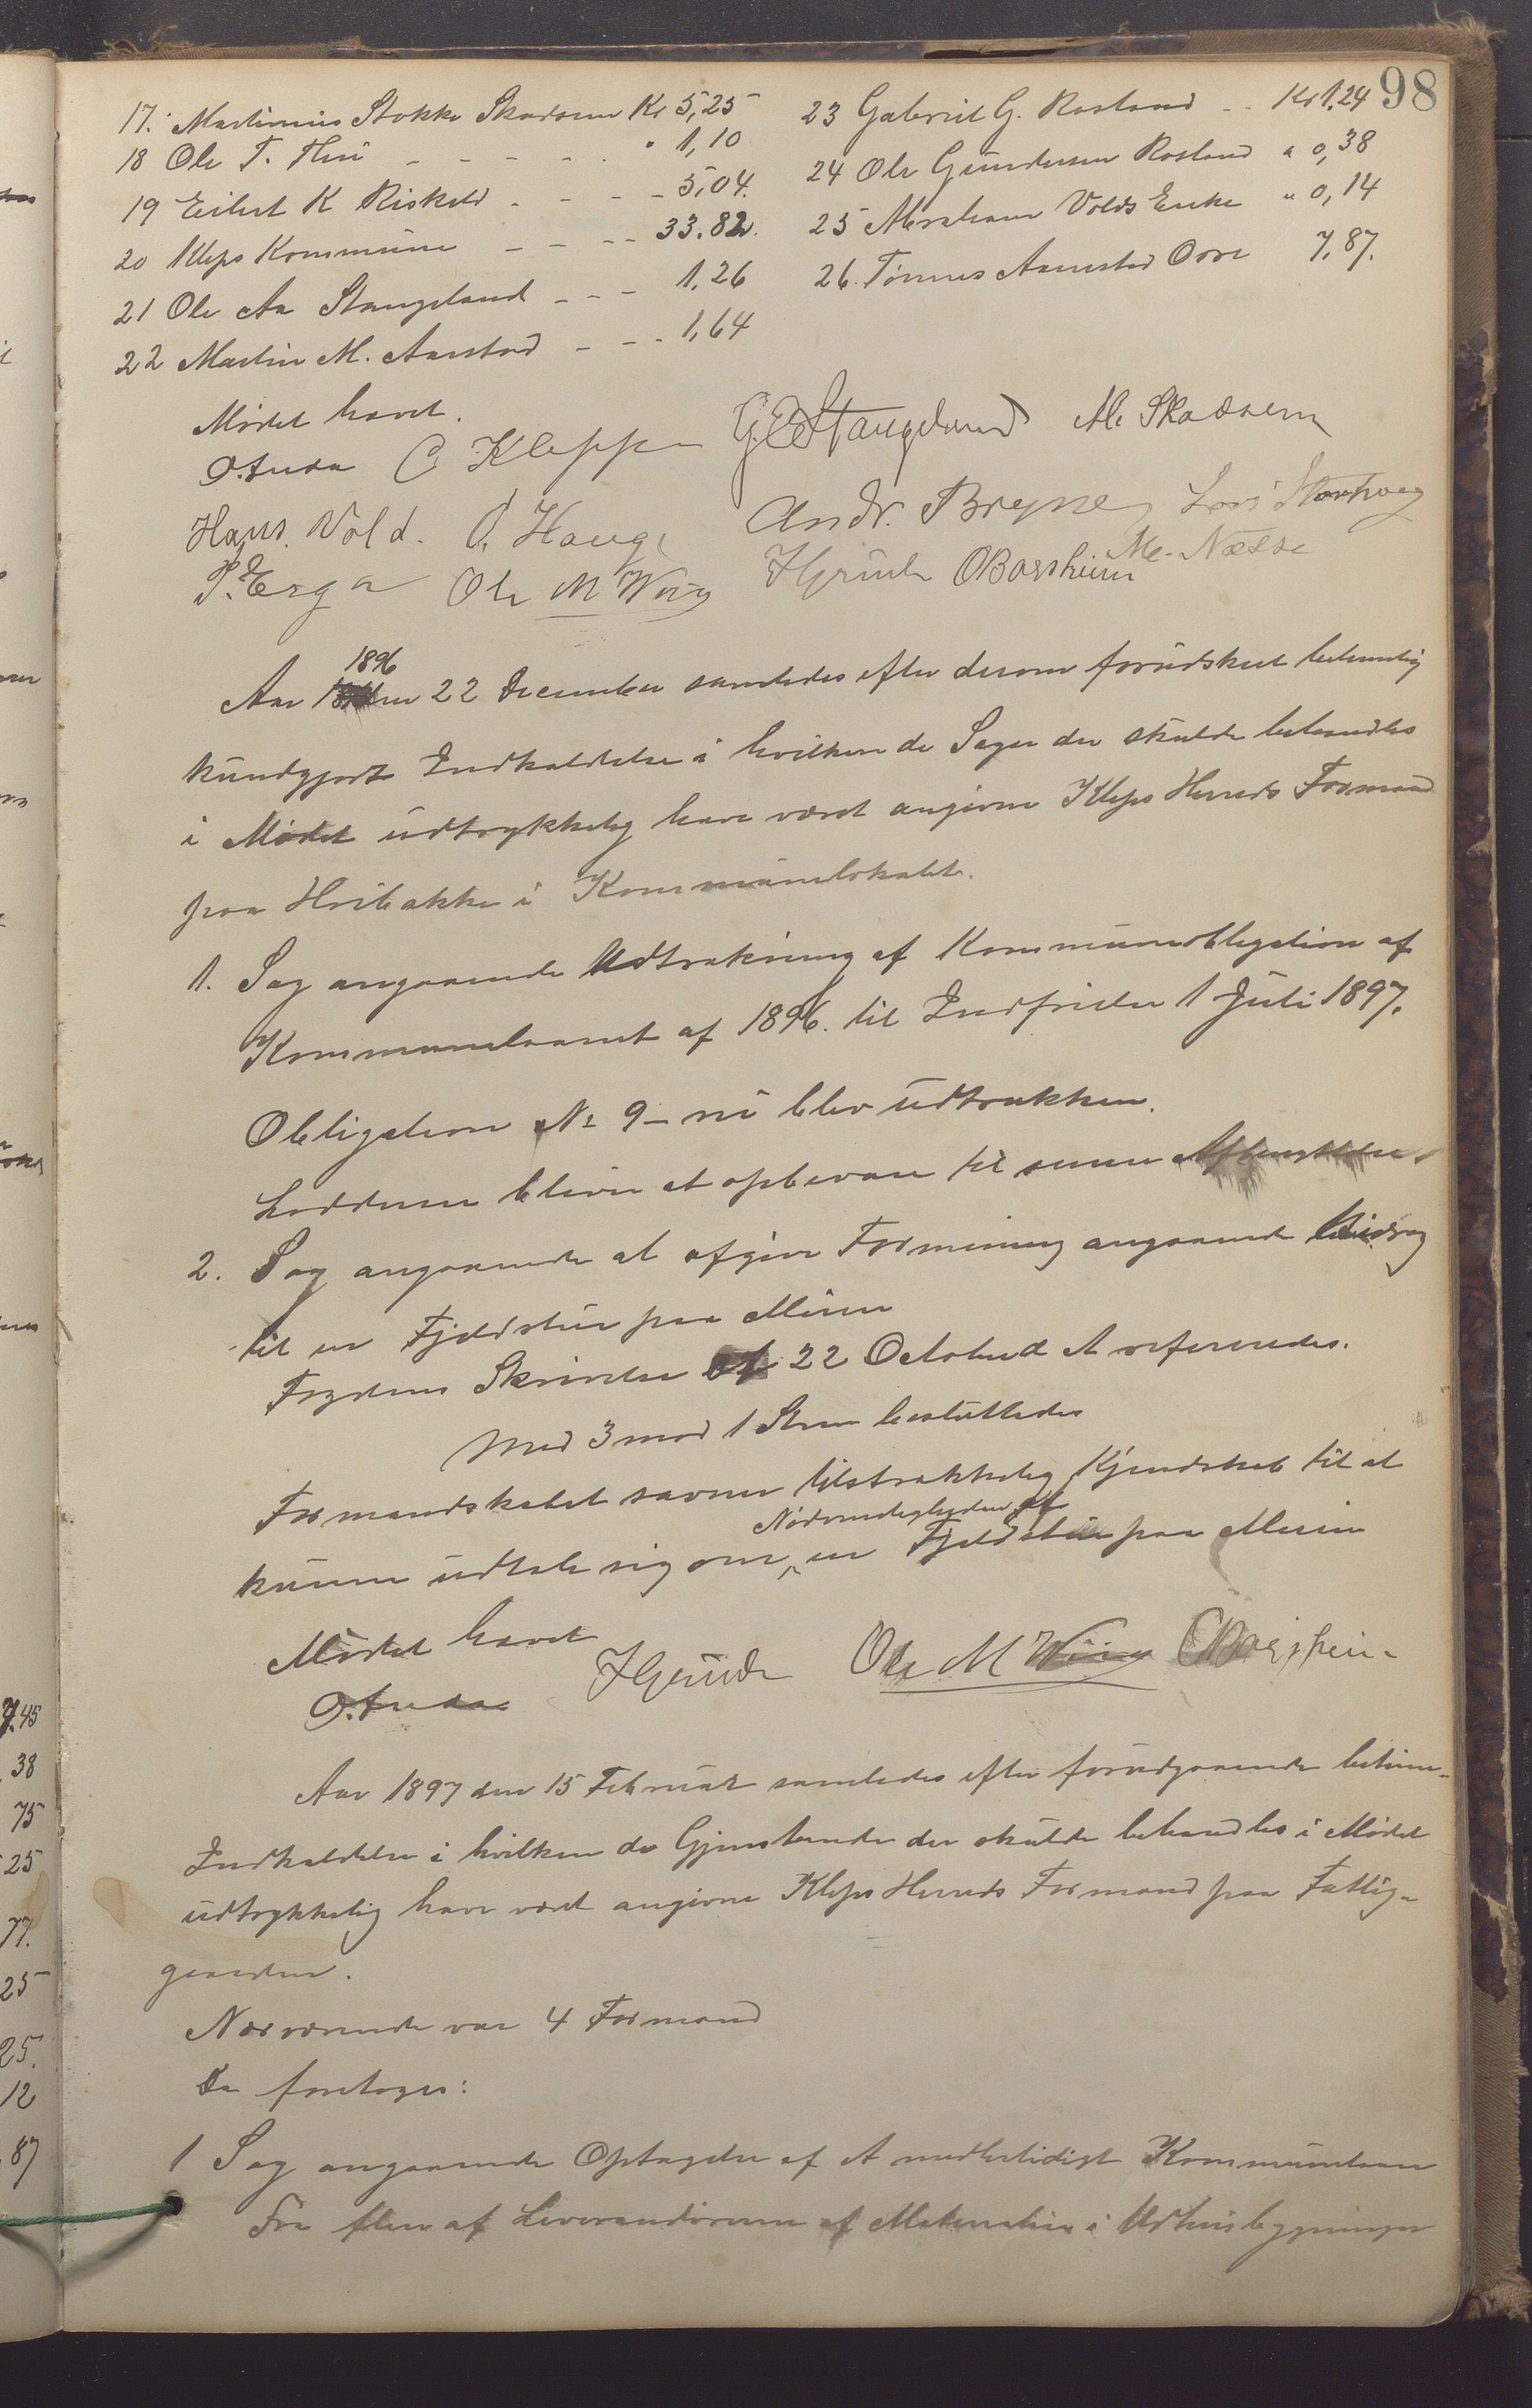 98
17. Martinius Stokke Skadsem Kr 5,25
18 Ole T. Thu - - - - - " 1,10
19 Eilert K Riskeld - - - - 5,04.
20 Kleps Kommune - - - - 33.82.
21 Ole Aa Stangeland - - - 1,26
22 Martin M. Aarstad - - - 1,64
23 Gabriel G. Rosland - - Kr 1,24
24 Ole Gundersen Rosland " 0,38
25 Abraham Volds Enke " 0,14
26. Tønnes Aanestad Orre 7,87.
Mødet hævet.
O. Kleppe G. E. Stangeland M. Skadsem
Hans Vold. O. Hauge Andr. Bryne Lars Storhoug
P. Erga Ole M Wiig H Grude O Borsheim M. Næsse
1896
Aar den 22 December samledes efter derom forudskeet betimelig
kundgjort Indkaldelse i hvilken de Sager der skulde behandles
i Mødet udtrykkelig have været angivne Kleps Herreds Formænd
paa Hvibakke i Kommunelokalet.
1. Sag angaaende Udtrækning af Kommuneobligation af
Kommunelaanet af 1896. til Indfrielse 1 Juli 1897.
Obligation No 9 - ni blev udtrukken.
Lodderne bliver at opbevare til senere Afbenyttelse
2. Sag angaaende at afgive Formening angaaende Bidrag
til en Fjeldstue paa
Fogdens Skrivelse af 22 October d A refereredes.
Med 3 mod 1 Stem besluttedes
Formandskabet savner tilstrækkelig Kjendskab til at
Nødvendigheden af
kunne udtale sig om en Fjeldstue paa
Mødet hævet
H Grude Ole M Wiig O Borsheim
Aar 1897 den 15 Februar samledes efter forudgaaende betime-
Indkaldelse i hvilken de Gjenstande der skulde behandles i Mødet
udtrykkelig have været angivne Kleps Herreds Formænd paa Fattig-
gaarden.
Nærværende var 4 Formænd
Da foretoges:
1 Sag angaaende Optagelse af et midlertidigt Kommunelaan
Fra flere af Leverandørerne af Materialier i Udhusbygninger